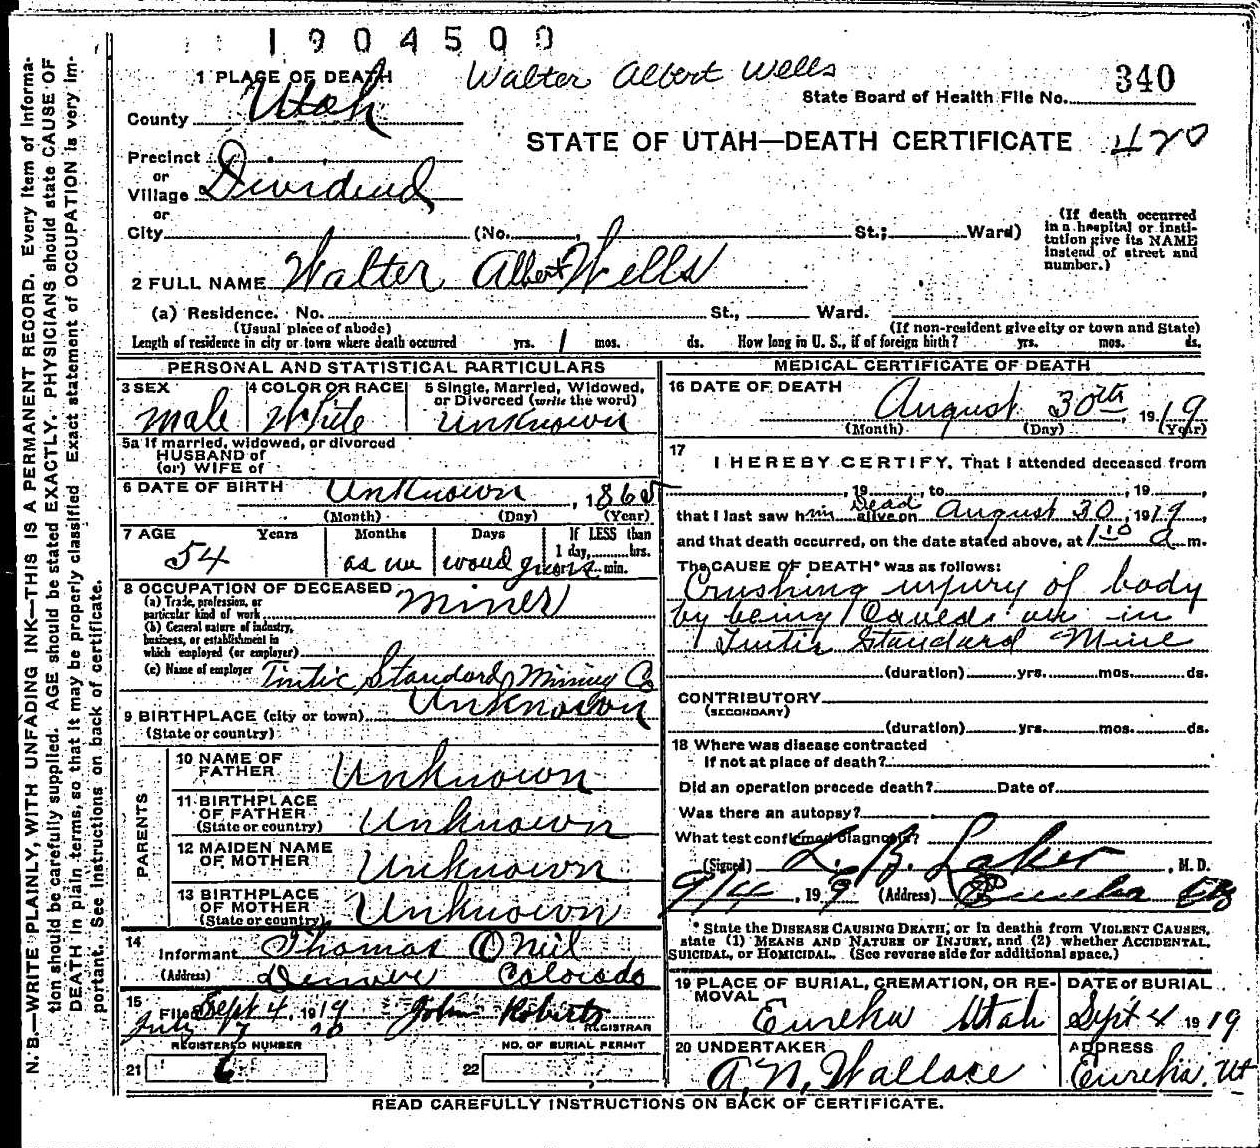 1904500
1 PLACE OF DEATH
Walter Albert Wells
340
State Board of Health File No.
County Utah
STATE OF UTAH—DEATH CERTIFICATE 420
Precinct
or
Village Dividend
or
City (No. St.; Ward)
(If death occurred
in a hospital or insti-
tution give its NAME
instead of street and
number.)
2 FULL NAME Walter Albert Wells
(a) Residence. No. St., Ward.
(Usual place of abode) (If non-resident give city or town and State)
Length of residence in city or town where death occurred yrs. 1 mos. ds. How long in U. S., if of foreign birth? yrs. mos. ds.
PERSONAL AND STATISTICAL PARTICULARS
3 SEX 4 COLOR OR RACE 5 Single, Married, Widowed,
or Divorced (write the word)
Male White Unknown
5a If married, widowed, or divorced
HUSBAND of
(or) WIFE of
6 DATE OF BIRTH Unknown, 1865
(Month) (Day) (Year)
7 AGE Years Months Days If LESS than
1 day, hrs.
54 as we would guess min.
8 OCCUPATION OF DECEASED Miner
(a) Trade, profession, or
particular kind of work
(b) General nature of industry,
business, or establishment in
which employed (or employer)
(c) Name of employer Tintic Standard Mining Co
9 BIRTHPLACE (city or town) Unknown
(State or country)
PARENTS
10 NAME OF
FATHER Unknown
11 BIRTHPLACE
OF FATHER
(State or country) Unknown
12 MAIDEN NAME
OF MOTHER Unknown
13 BIRTHPLACE
OF MOTHER
(State or country) Unknown
14
Informant Thomas O'Neil
(Address) Denver Colorado
15
Filed Sept 4, 1919 John Roberts
July 17 20 REGISTRAR
REGISTERED NUMBER NO. OF BURIAL PERMIT
21 6 22
MEDICAL CERTIFICATE OF DEATH
16 DATE OF DEATH
August 30th, 1919
(Month) (Day) (Year)
17
I HEREBY CERTIFY, That I attended deceased from
, 19 , to , 19 ,
that I last saw him Dead alive on August 30, 1919,
and that death occurred, on the date stated above, at 1:10 a m.
The CAUSE OF DEATH* was as follows:
Crushing injury of body
by being Caved on in
Tintic Standard Mine
(duration) yrs. mos. ds.
CONTRIBUTORY
(SECONDARY)
(duration) yrs. mos. ds.
18 Where was disease contracted
If not at place of death?
Did an operation precede death? Date of
Was there an autopsy?
What test confirmed diagnosis?
(Signed) L. B. Laker, M. D.
9/4, 199 (Address) Eureka
* State the DISEASE CAUSING DEATH, or in deaths from VIOLENT CAUSES,
state (1) MEANS AND NATURE OF INJURY, and (2) whether ACCIDENTAL,
SUICIDAL, or HOMICIDAL. (See reverse side for additional space.)
19 PLACE OF BURIAL, CREMATION, OR RE-
MOVAL
DATE of BURIAL
Eureka Utah Sept 4 1919
20 UNDERTAKER ADDRESS
A. N. Wallace Eureka, Ut
READ CAREFULLY INSTRUCTIONS ON BACK OF CERTIFICATE.
N. B.—WRITE PLAINLY, WITH UNFADING INK—THIS IS A PERMANENT RECORD. Every item of informa-
tion should be carefully supplied. AGE should be stated EXACTLY. PHYSICIANS should state CAUSE OF
DEATH in plain terms, so that it may be properly classified. Exact statement of OCCUPATION is very im-
portant. See instructions on back of certificate.